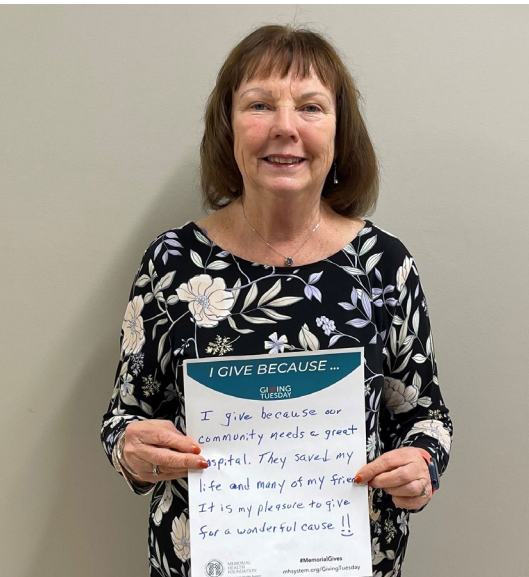 I GIVE BECAUSE ...
GIVING
TUESDAY
I give because our
community needs a great
hospital. They saved my
life and many of my friends
It is my pleasure to give
for a wonderful cause !!
MEMORIAL
HEALTH
FOUNDATION
#MemorialGives
mhsystem.org/GivingTuesday